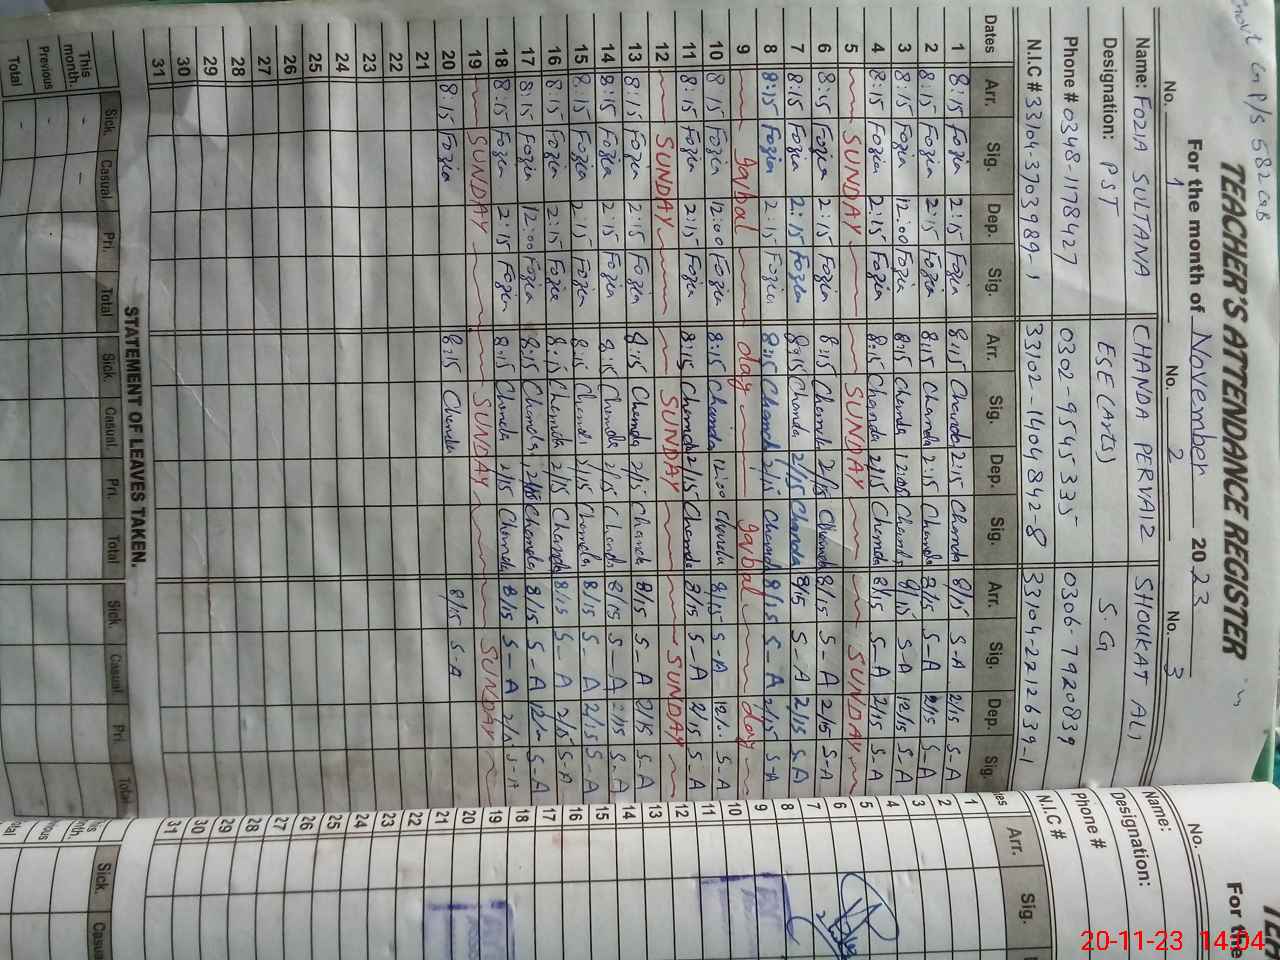 P/S 582 GB
TEACHER'S ATTENDANCE REGISTER
For the month of November 2023
No. 1 No. 2 No. 3
Name: FOZIA SULTANA CHANDA PERVAIZ SHOUKAT ALI
Designation: PST ESE (Arts) S.G
Phone # 0348-1178427 0302-9545335 0306-7920839
N.I.C # 33104-3703989-1 33102-1404842-8 33104-2212639-1
Dates Arr. Sig. Dep. Sig. Arr. Sig. Dep. Sig. Arr. Sig. Dep. Sig.
1 8:15 Fozia 2:15 Fozia 8:15 Chanda 2:15 Chanda 8/15 S-A 2/15 S-A
2 8:15 Fozia 2:15 Fozia 8:15 Chanda 2:15 Chanda 8/15 S-A 2/15 S-A
3 8:15 Fozia 12:00 Fozia 8:15 Chanda Chanda 8/15 S-A 12/15 S-A
4 8:15 Fozia 2:15 Fozia 8:15 Chanda 2/15 Chanda 8/15 S-A 2/15 S-A
5 SUNDAY SUNDAY SUNDAY
6 8:15 Fozia 2:15 Fozia 8:15 Chanda 2/15 Chanda 8/15 S-A 2/15 S-A
7 8:15 Fozia 2:15 Fozia 8:15 Chanda 2/15 Chanda 8/15 S-A 2/15 S-A
8 8:15 Fozia 2:15 Fozia 8:15 Chanda 2/15 Chanda 8/15 S-A 2/15 S-A
9 iqbal day iqbal day
10 8:15 Fozia 12:00 Fozia 8:15 Chanda 12:00 Chanda 8/15 S-A S-A
11 8:15 Fozia 2:15 Fozia 8:15 Chanda 2/15 Chanda 8/15 S-A 2/15 S-A
12 SUNDAY SUNDAY SUNDAY
13 8:15 Fozia 2:15 Fozia 8:15 Chanda 2/15 Chanda 8/15 S-A 2/15 S-A
14 8:15 Fozia 2:15 Fozia 8:15 Chanda 2/15 Chanda 8/15 S-A 2/15 S-A
15 8:15 Fozia 2:15 Fozia 8:15 Chanda 2/15 Chanda 8/15 S-A 2/15 S-A
16 8:15 Fozia 2:15 Fozia 8:15 Chanda 2/15 Chanda 8/15 S-A 2/15 S-A
17 8:15 Fozia 12:00 Fozia 8:15 Chanda Chanda 8/15 S-A S-A
18 8:15 Fozia 2:15 Fozia 8:15 Chanda 2/15 Chanda 8/15 S-A 2/15 S-A
19 SUNDAY SUNDAY SUNDAY
20 8:15 Fozia 8:15 Chanda 8/15 S-A
21
22
23
24
25
26
27
28
29
30
31
STATEMENT OF LEAVES TAKEN.
Sick Casual Pri. Total Sick. Casual. Pri. Total Sick. Casual. Pri. Total
This month. - -
Previous -
Total -
For the
No.
Name:
Designation:
Phone #
N.I.C #
Arr. Sig.
1
2
3
4
5
6
7
8
9
10
11
12
13
14
15
16
17
18
19
20
21
22
23
24
25
26
27
28
29
30
31
Sick Casua
20-11-23 14:04